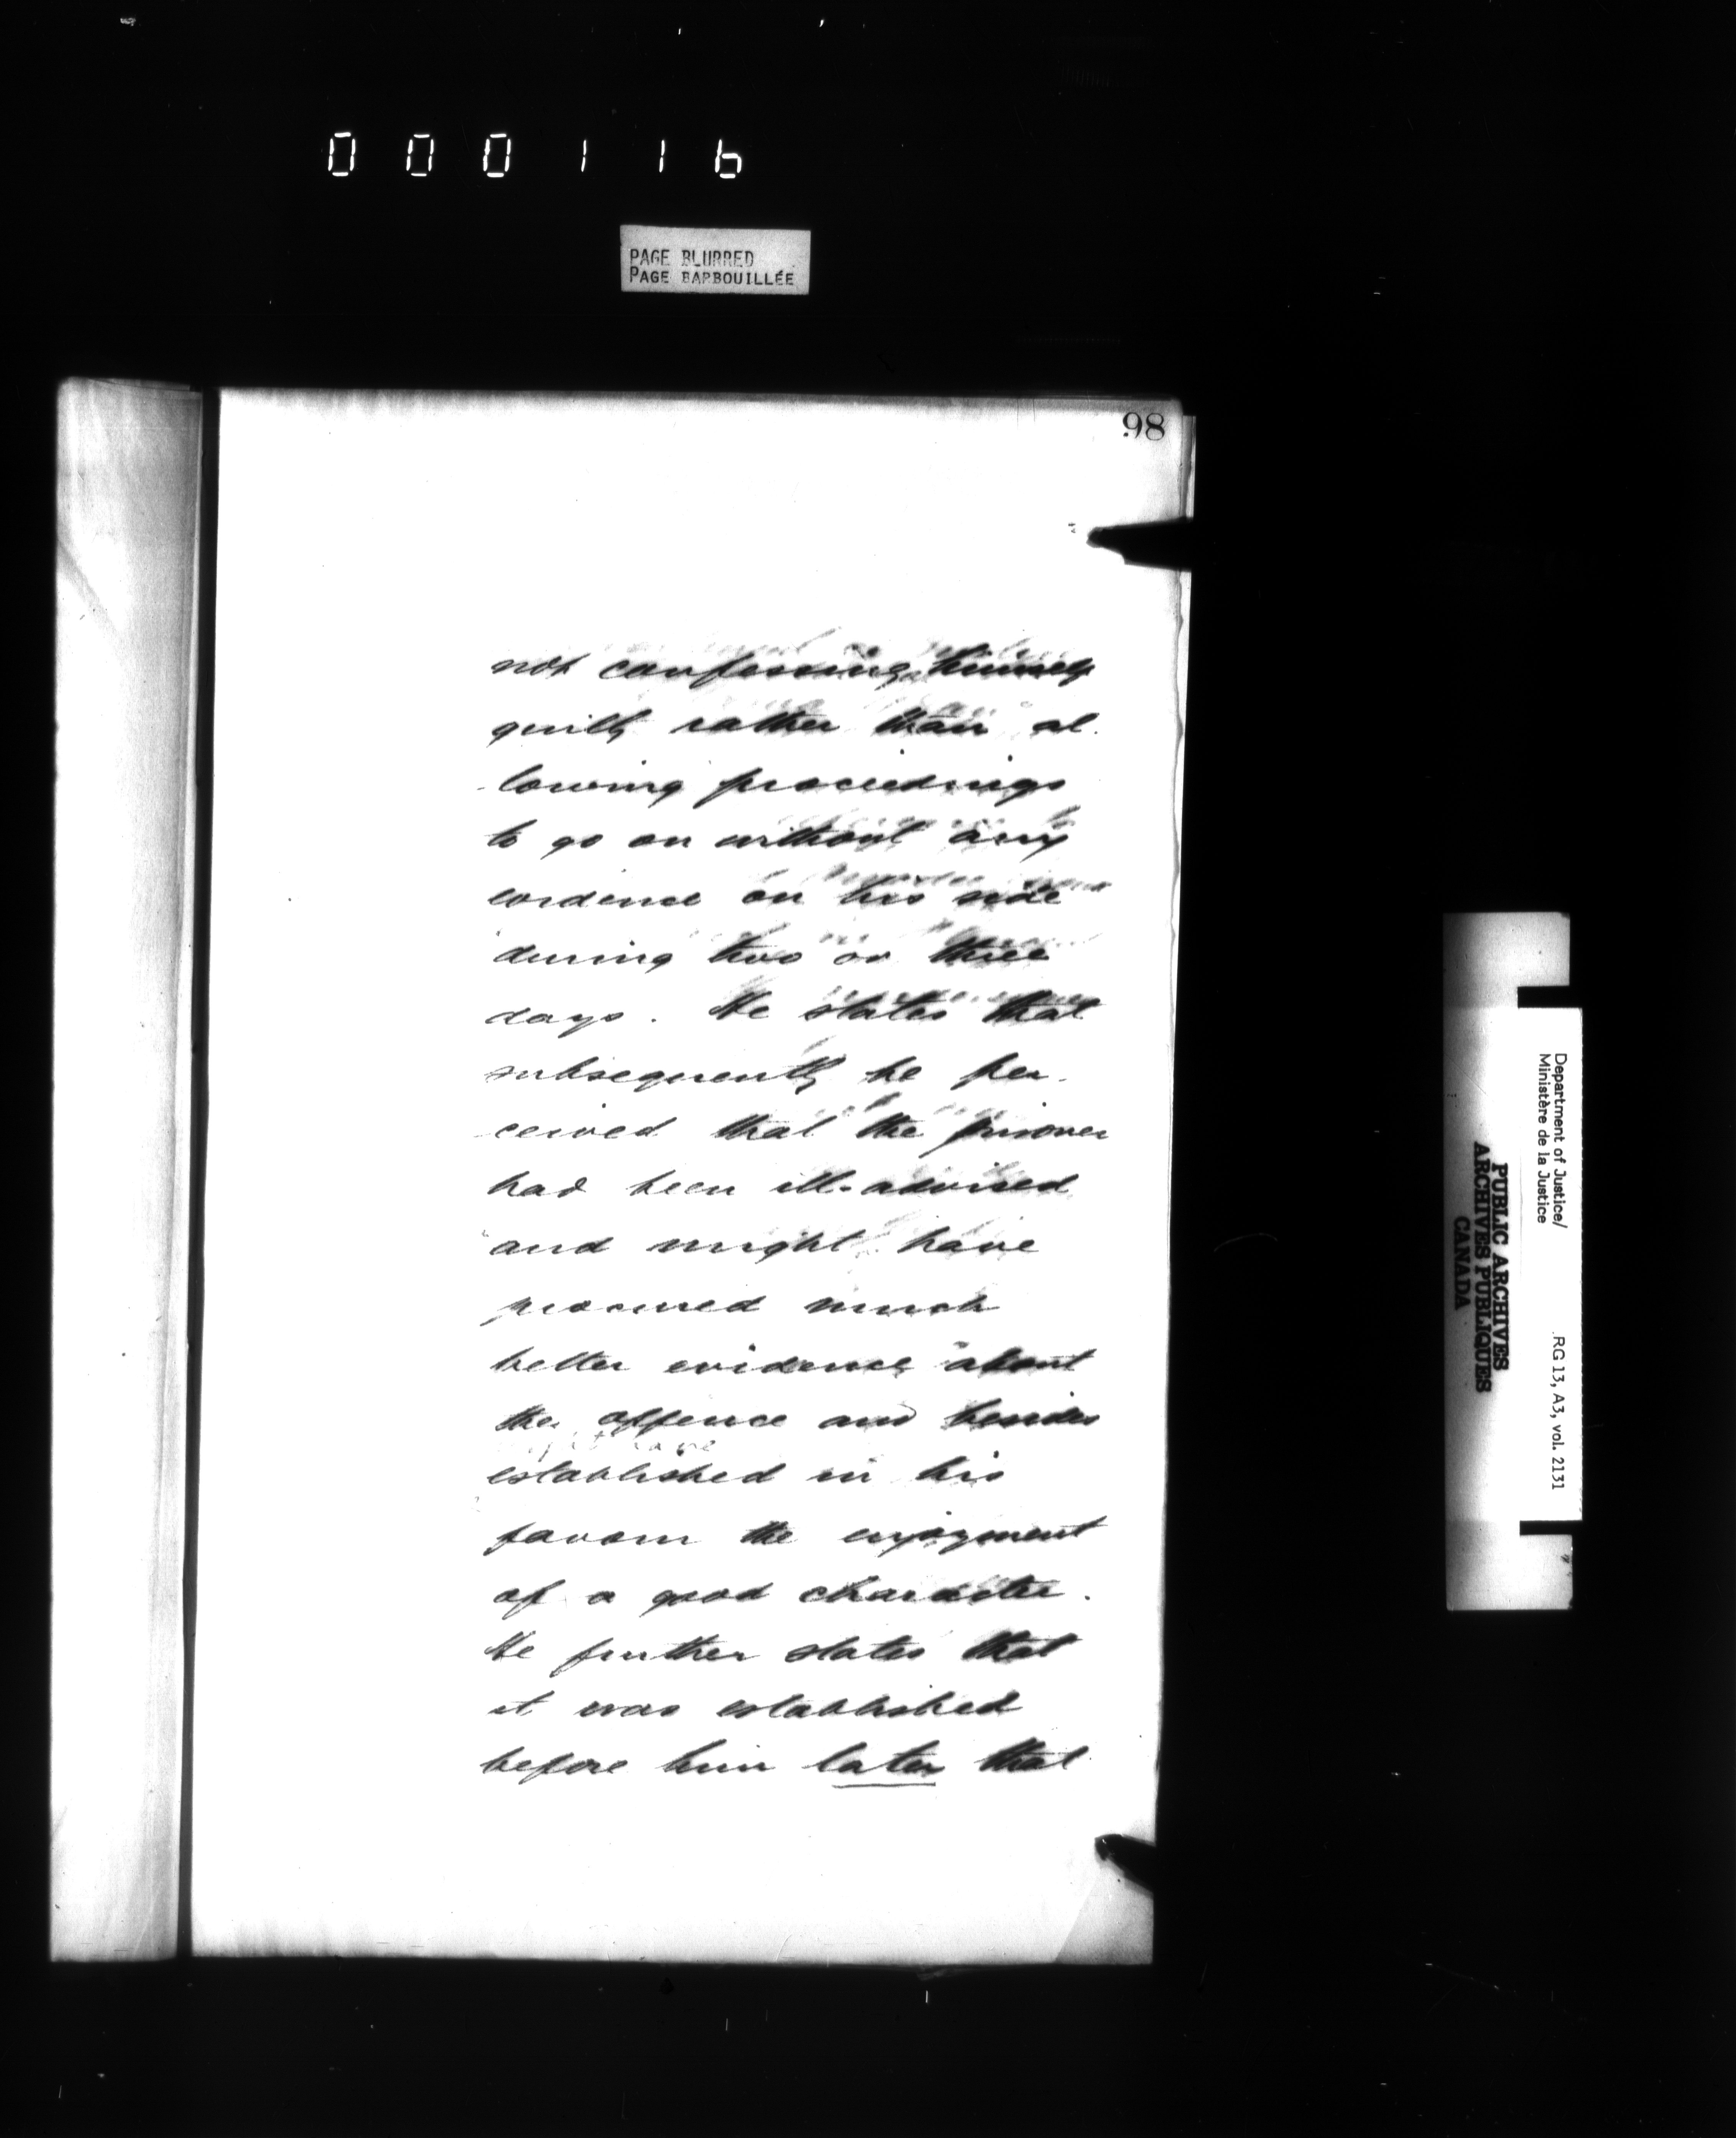 000116
PAGE BLURRED
PAGE BARBOUILLÉE
98
not confessing himself
guilty rather than al-
-lowing proceedings
to go on without any
evidence on his side
during two or three
days. He states that
subsequently he per-
-ceived that the prisoner
had been ill-advised
and might have
procured much
better evidence about
the offence and besides
might have
established in his
favour the enjoyment
of a good character.
He further states that
it was established
before him later that
Department of Justice/
Ministère de la Justice
RG 13, A3, vol. 2131
PUBLIC ARCHIVES
ARCHIVES PUBLIQUES
CANADA